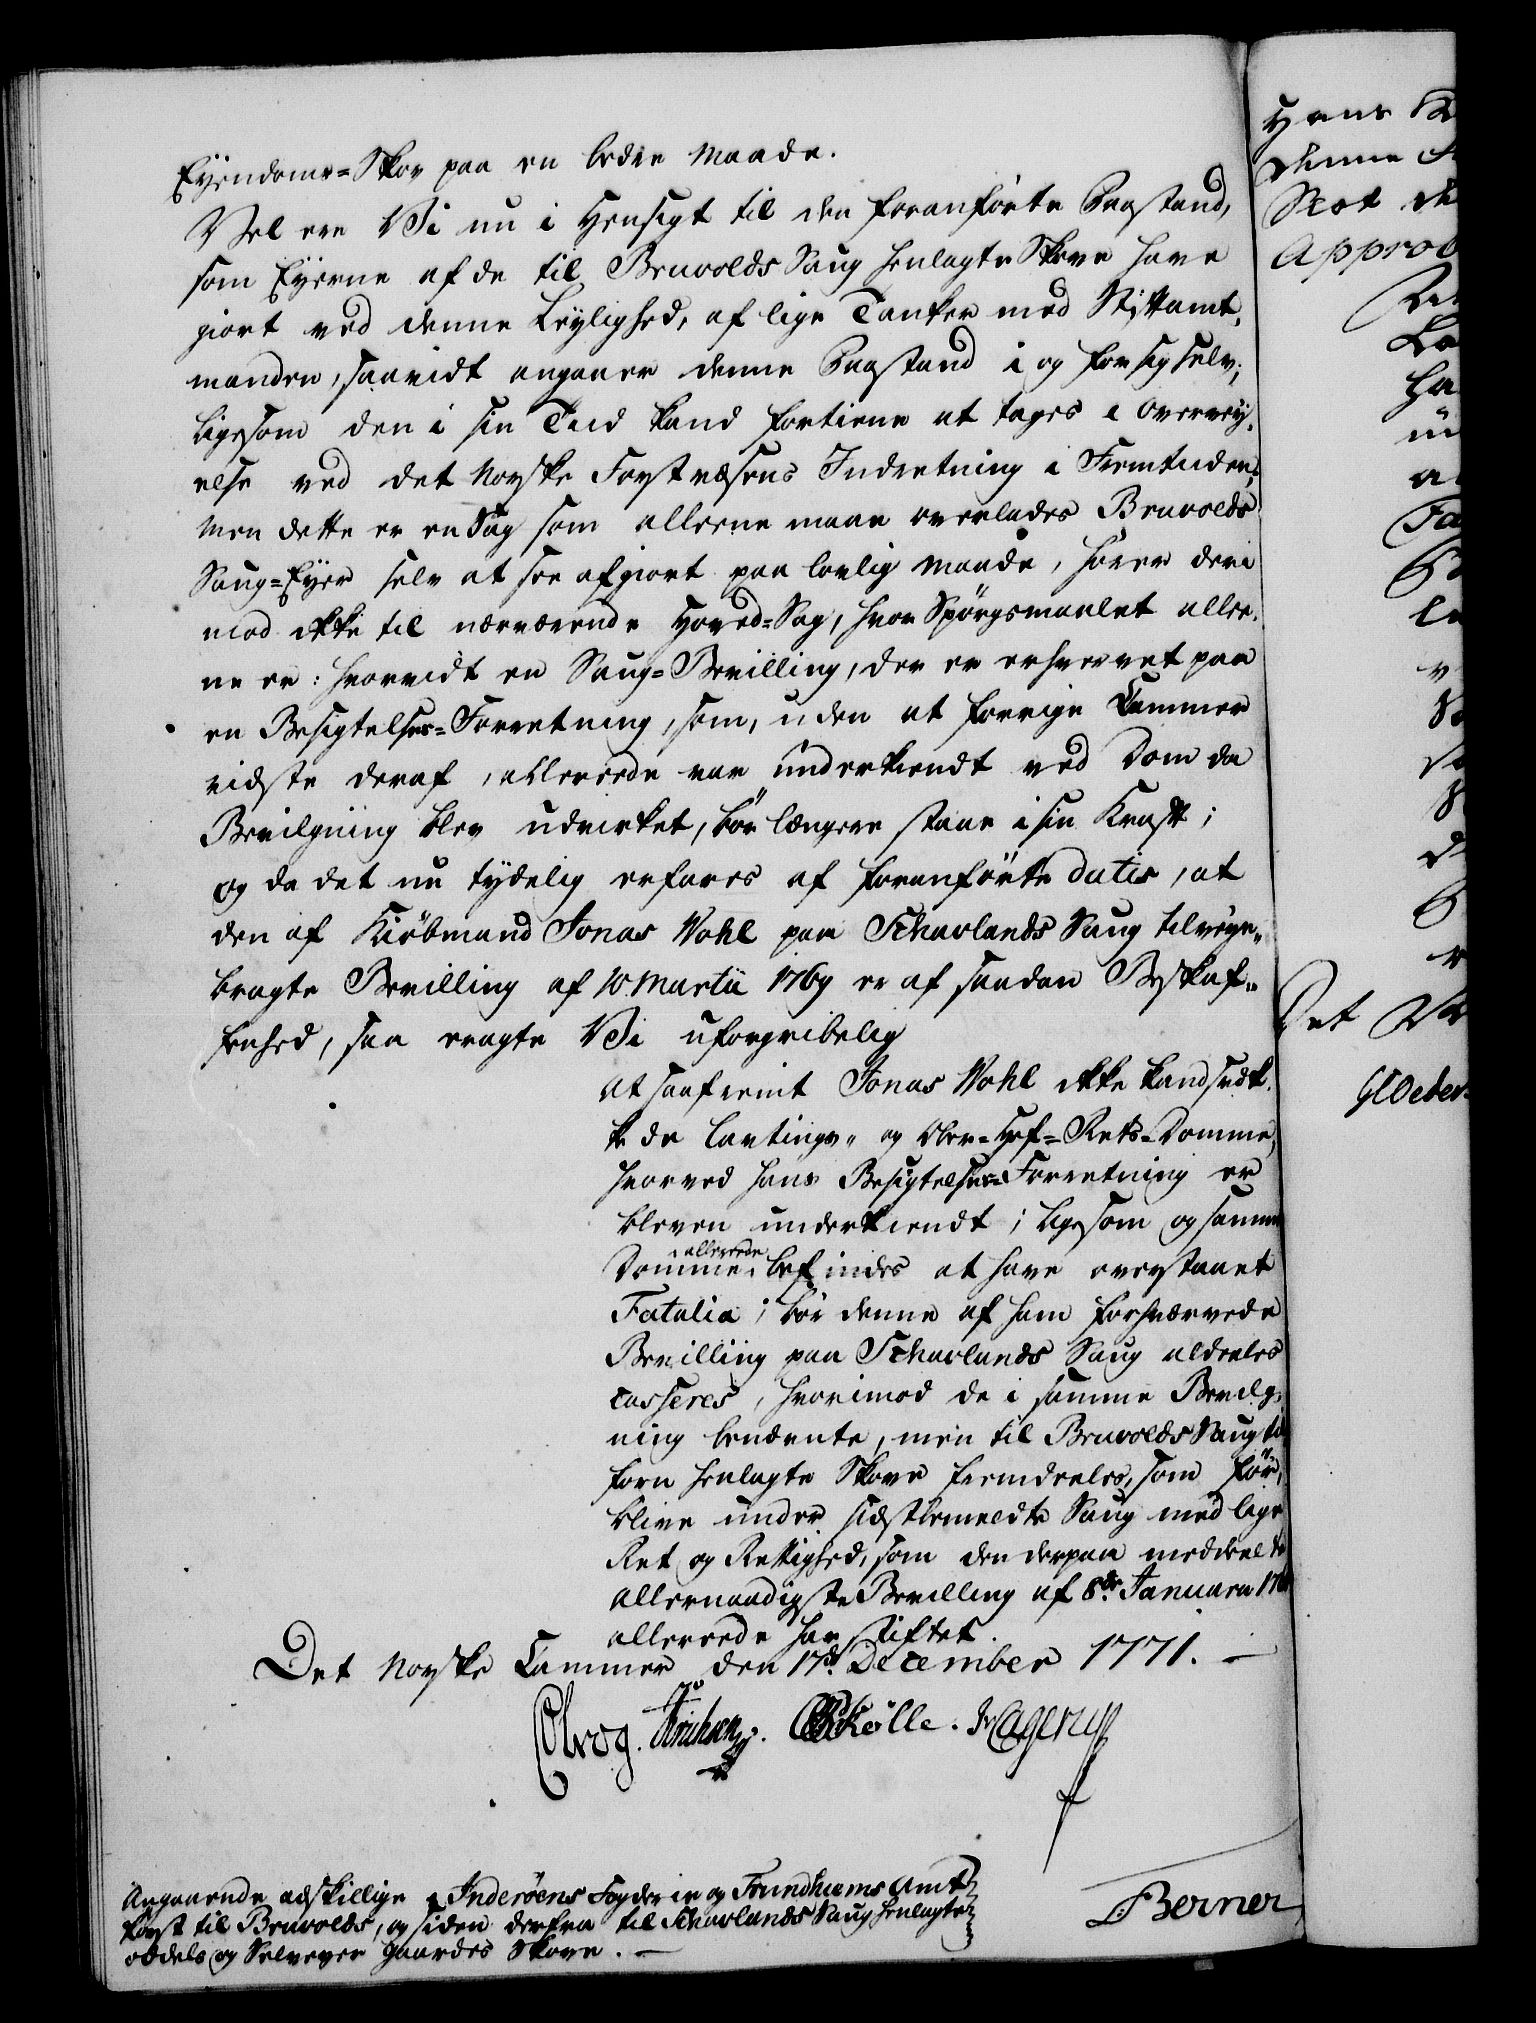 Eyendoms=Skov paa en bedre Maade.
Vel ere Vi nu i Hensigt til den foranførte Paastand,
som Eyerne af de til Bruvolds Saug henlagte Skove have
giort ved denne Leylighed, af lige Tanker med Stiftamt-
manden, saavidt angaaer denne Paastand i og for sig selv;
ligesom den i sin Tiid kand fortiene at tages i Overvey-
else ved det Norske Forstvæsens Indretning i Fremtiden;
men dette er en Sag som alleene maae overlades Bruvolds
Saug=Eyer selv at see afgiort paa lovlig Maade, hører deri
mod ikke til nærværende Hoved=Sag, hvor Spørgsmaalet allee-
ne er: hvorvidt en Saug=Bevilling, der er erhvervet paa
en Besigtelses=Forretning, som, uden at forrige Cammer
vidste deraf, allereede var underkiendt ved Dom da
Bevilgning blev udvirket, bør længere staae i sin Kraft;
og da det nu tydelig erfares af foranførte datis, at
den af Kiøbmand Jonas Wohl paa Schavlands Saug tilveye-
bragte Bevilling af 10 Martii 1769 er af saadan Beskaf-
fenhed, saa eragte Vi uforgribelig
at saafremt Jonas Wohl ikke kand svæk-
ke de Lavtings- og Over=Hof=Rets=Domme,
hvorved hans Besigtelses=Forretning er
bleven underkiendt; ligesom og samme
Domme allereede befindes at have overstaaet
Fatalia; bør denne af ham forhværvede
Bevilling paa Schavlands Saug aldeeles
casseres, hvorimod de i samme Bevilg-
ning benævnte, men til Bruvolds Saug til
forn henlagte Skove fremdeeles, som før,
blive under sidstbemeldte Saug med lige
Ret og Rettighed, som den derpaa meddeelte
allernaadigste Bevilling af 8de Januarii 17
allereede har stiftet.
Det Norske Cammer den 17de December 1771. —
Holle. Hagerup
Angaaende adskillige i Inderøens Fogderie og Trundhiems Amt
først til Bruvolds, og siden derfra til Schavlands Saug henlagte
Odels og Selveyer Gaardes Skove. —
Berner
Hans
denne
Approb
Fa
Det